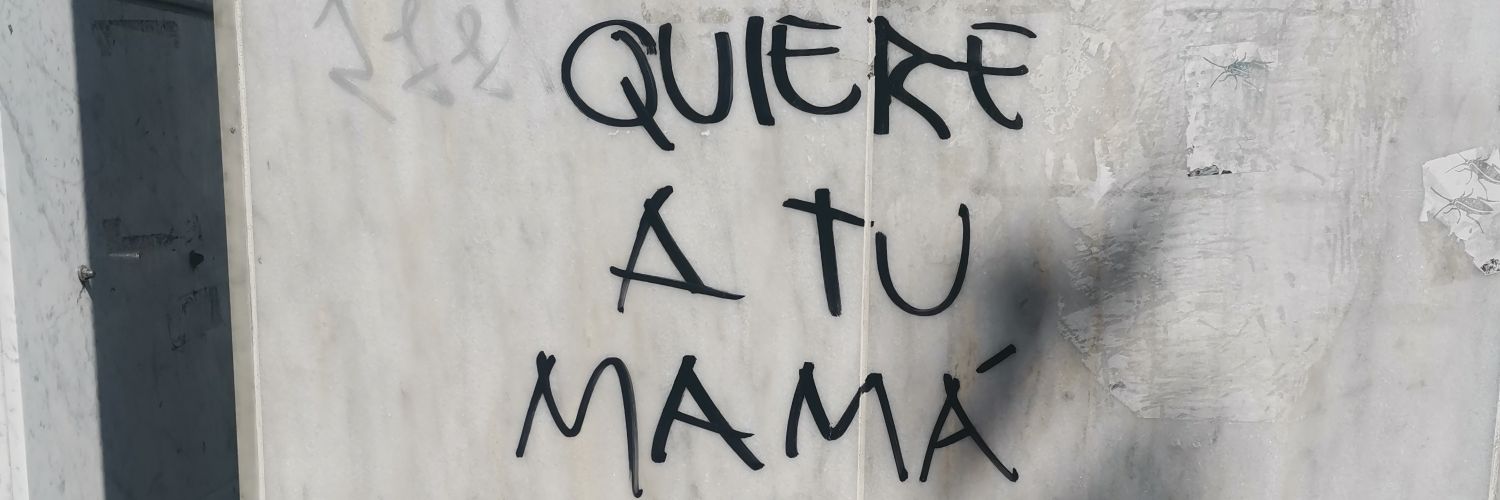 QUIERE
A TU
MAMÁ